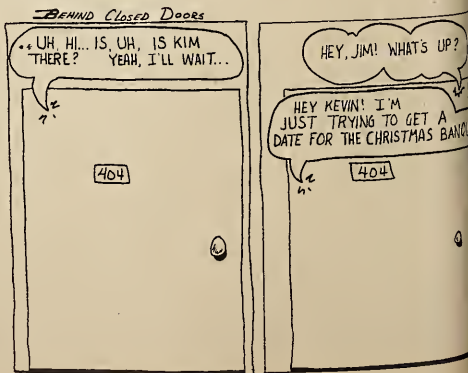 BEHIND CLOSED DOORS
.. UH, HI... IS, UH, IS KIM
THERE? YEAH, I'LL WAIT...
404
HEY, JIM! WHAT'S UP?
HEY KEVIN! I'M
JUST TRYING TO GET A
DATE FOR THE CHRISTMAS
404